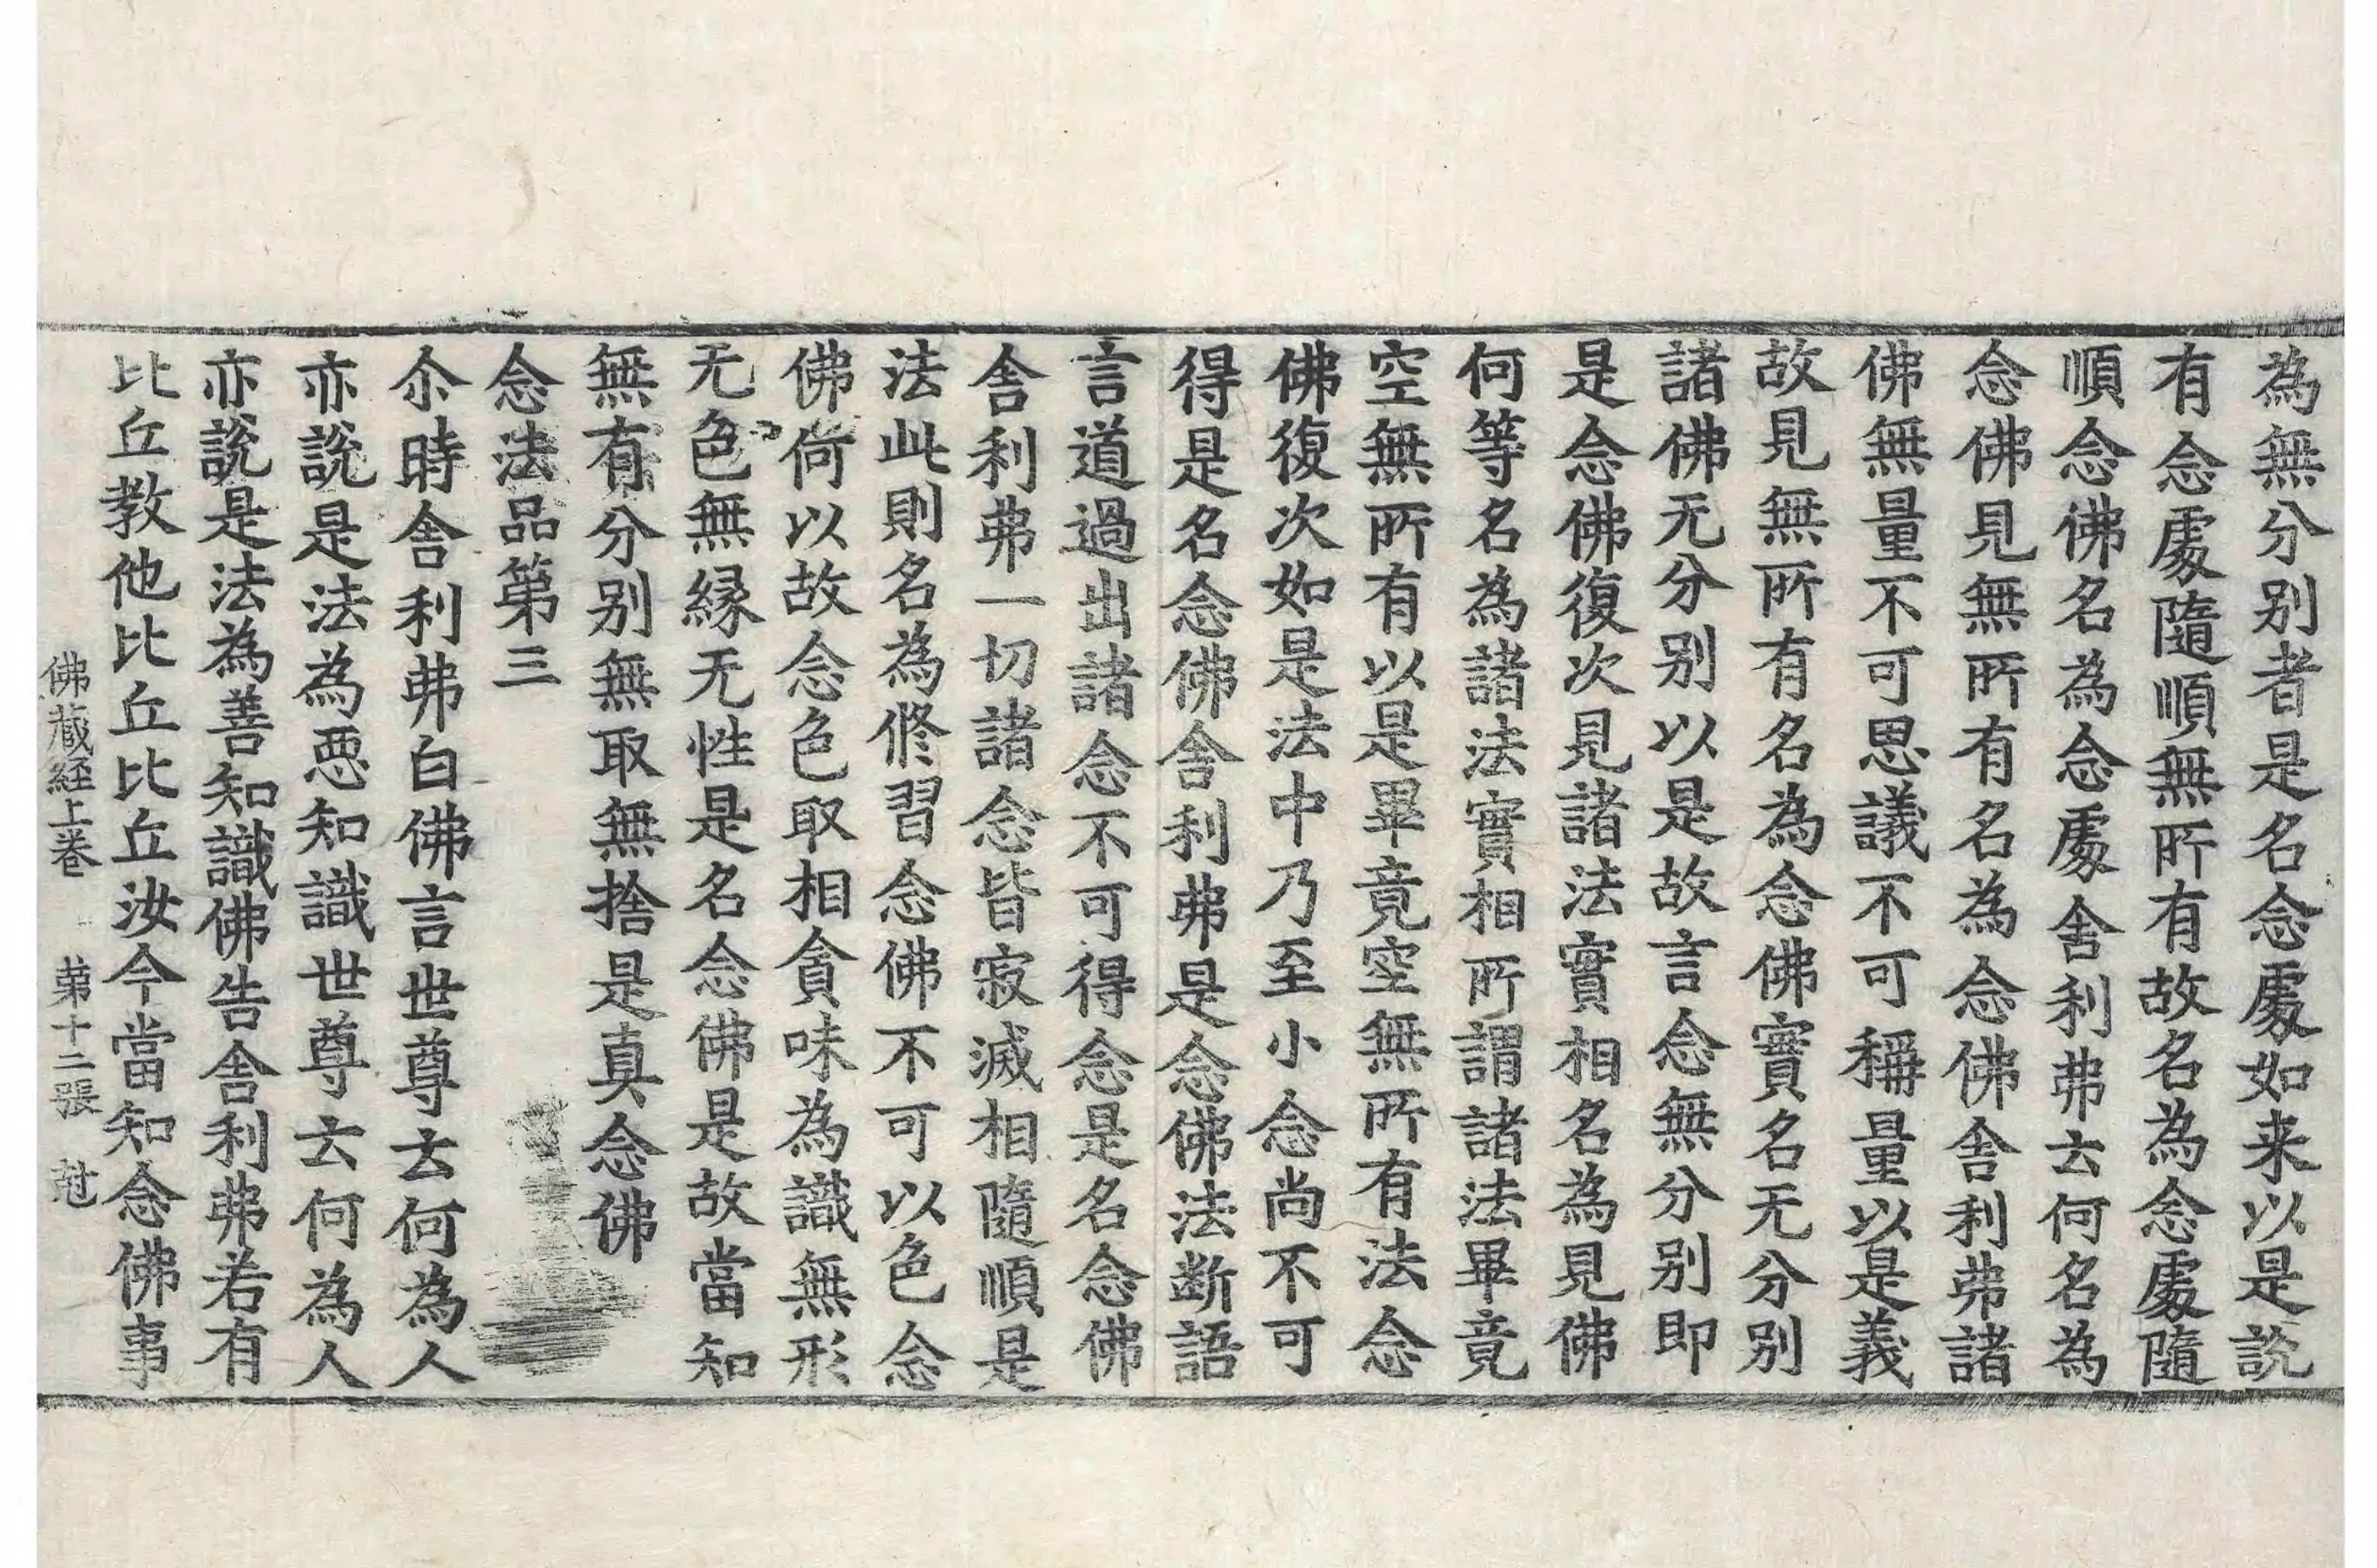 為無分别者是名念處如来以是說
有念處隨順無所有故名為念處隨
順念佛名為念處舍利弗云何名為
念佛見無所有名為念佛舍利弗諸
佛無量不可思議不可稱量以是義
故見無所有名為念佛實名无分别
諸佛无分别以是故言念無分别即
是念佛復次見諸法實相名為見佛
何等名為諸法實相所謂諸法畢竟
空無所有以是畢竟空無所有法念
佛復次如是法中乃至小念尚不可
得是名念佛舍利弗是念佛法断語
言道過出諸念不可得念是名念佛
舍利弗一切諸念皆寂滅相隨順是
法此則名為修習念佛不可以色念
佛何以故念色取相貪味為識無形
无色無縁无性是名念佛是故當知
無有分别無取無捨是真念佛
念法品第三
尒時舍利弗白佛言世尊云何為人
亦說是法為惡知識世尊云何為人
亦說是法為善知識佛告舍利弗若有
比丘教他比丘比丘汝今當知念佛事
佛藏経上卷 第十二張 尅